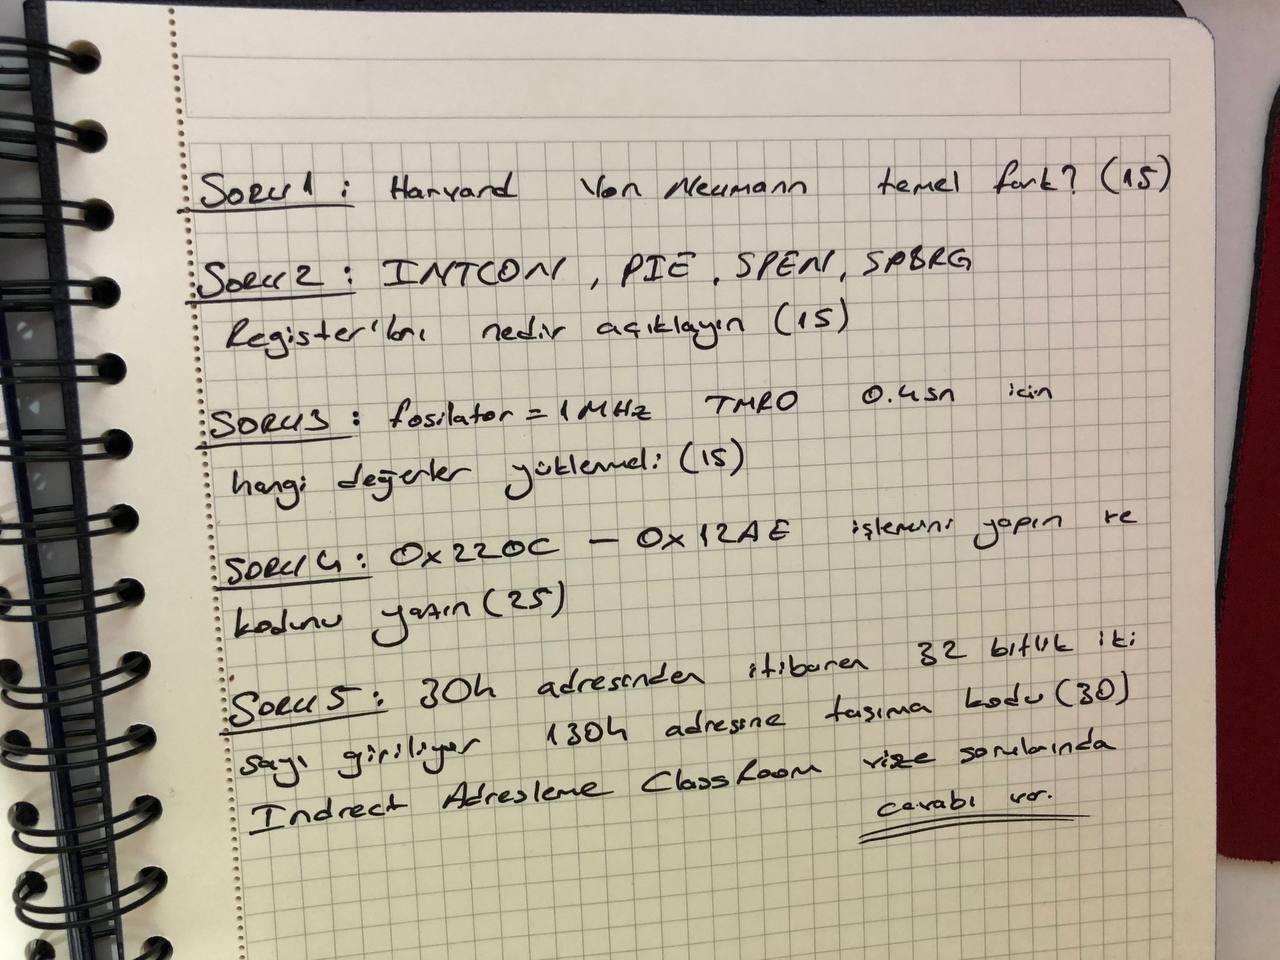 Soru 1 : Harvard Von Neumann temel fark? (15)
Soru 2 : INTCON, PIE, SPEN, SPBRG
Register'ları nedir açıklayın (15)
Soru 3 : fosilator = 1MHz TMR0 0.4sn için
hangi değerler yüklenmeli (15)
Soru 4 : 0x220C - 0x12AE işlemini yapın ve
kodunu yazın (25)
Soru 5 : 30h adresinden itibaren 32 bitlik iki
sayı giriliyor 130h adresine taşıma kodu (30)
Indrect Adresleme ClassRoom vize sorularında
cevabı var.